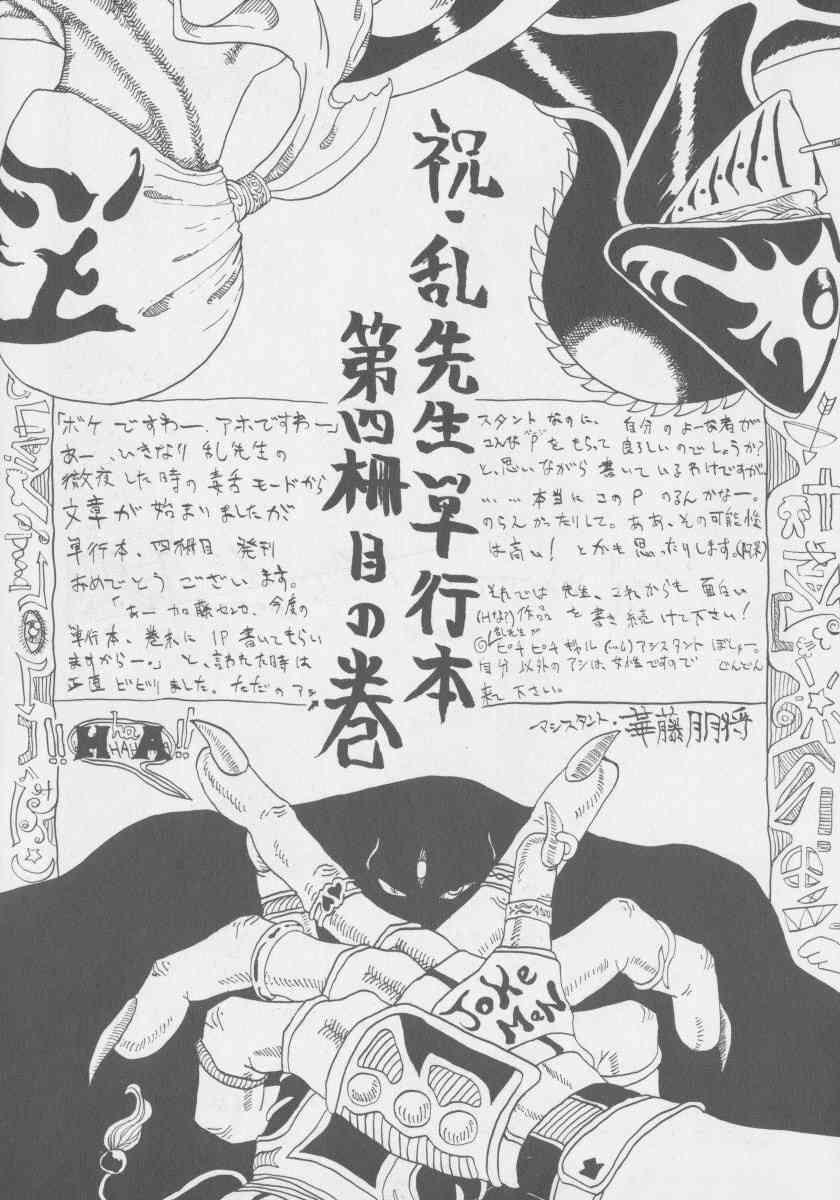 祝・乱先生単行本
第四柵目の巻
「ボケですわー、アホですわー」
あー、いきなり乱先生の
徹夜した時の毒舌モードから
文章が始まりましたが
単行本、四柵目 発刊
おめでとうございます。
「あー加藤センセ、今度の
単行本、巻末に1P書いてもらい
ますからー。」と、言われた時は
正直ビビリました。ただのアシ
スタントなのに、自分のよーな者が
こんな"P"をもらって良ろしいのでしょうか?
と、思いながら書いているわけですが
……本当にこのPのるんかなー。
のらんかったりして。ああ、その可能性
は高い!とかも思ったりします。
それでは先生、これからも面白い
(Hな?)作品を書き続けて下さい!
乱先生が
ピチピチギャル アシスタントぼしゅー。
自分以外のアシは、女性ですのでどんどん
来て下さい。
マシスタント・華藤朋将
!! Ha HAHAHA !!
HA
JoKe
MaN